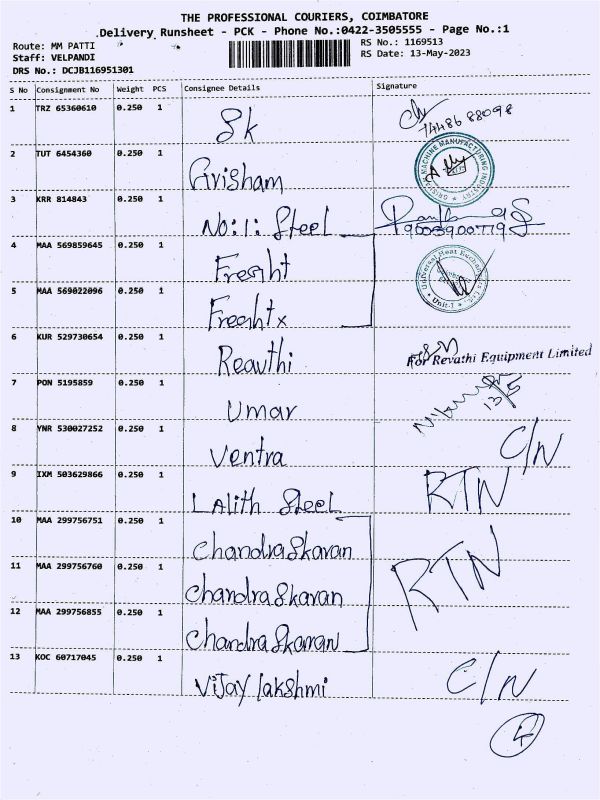 THE PROFESSIONAL COURIERS, COIMBATORE
Delivery Runsheet - PCK - Phone No.:0422-3505555 - Page No.:1
Route: MM PATTI RS No.: 1169513
Staff: VELPANDI RS Date: 13-May-2023
DRS No.: DCJB116951301
S No Consignment No Weight PCS Consignee Details Signature
1 TRZ 65360610 0.250 1 Sk 7448688098
2 TUT 6454360 0.250 1 Grisham
3 KRR 814843 0.250 1 No:1: Steel 9600900779
4 MAA 569859645 0.250 1 Freight
5 MAA 569022096 0.250 1 Freightx
6 KUR 529730654 0.250 1 Reavthi For Revathi Equipment Limited
7 PON 5195859 0.250 1 Umar 13/5
8 YNR 530027252 0.250 1 Ventra C/N
9 IXM 503629866 0.250 1 Lalith Steel RTN
10 MAA 299756751 0.250 1 ChandraSkaran
11 MAA 299756760 0.250 1 ChandraSkaran RTN
12 MAA 299756855 0.250 1 ChandraSkaran
13 KOC 60717045 0.250 1 Vijay lakshmi C/N
4